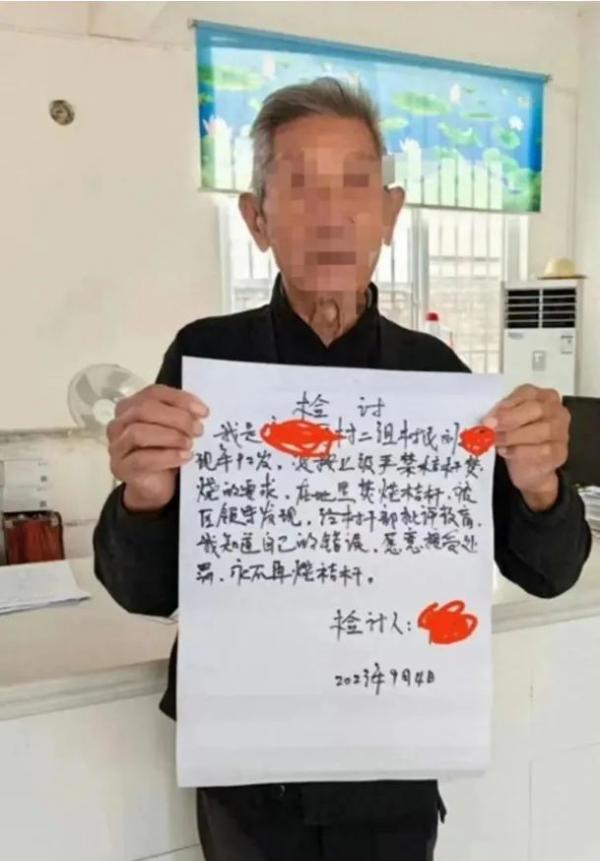 检讨
我是 村二组村民
现年92岁，没按上级严禁桔杆焚
烧的要求，在地里焚烧桔杆，被
区领导发现，经村干部批评教育，
我知道自己的错误，愿意接受处
罚，永不再烧桔杆。
检讨人：
2023年9月4日